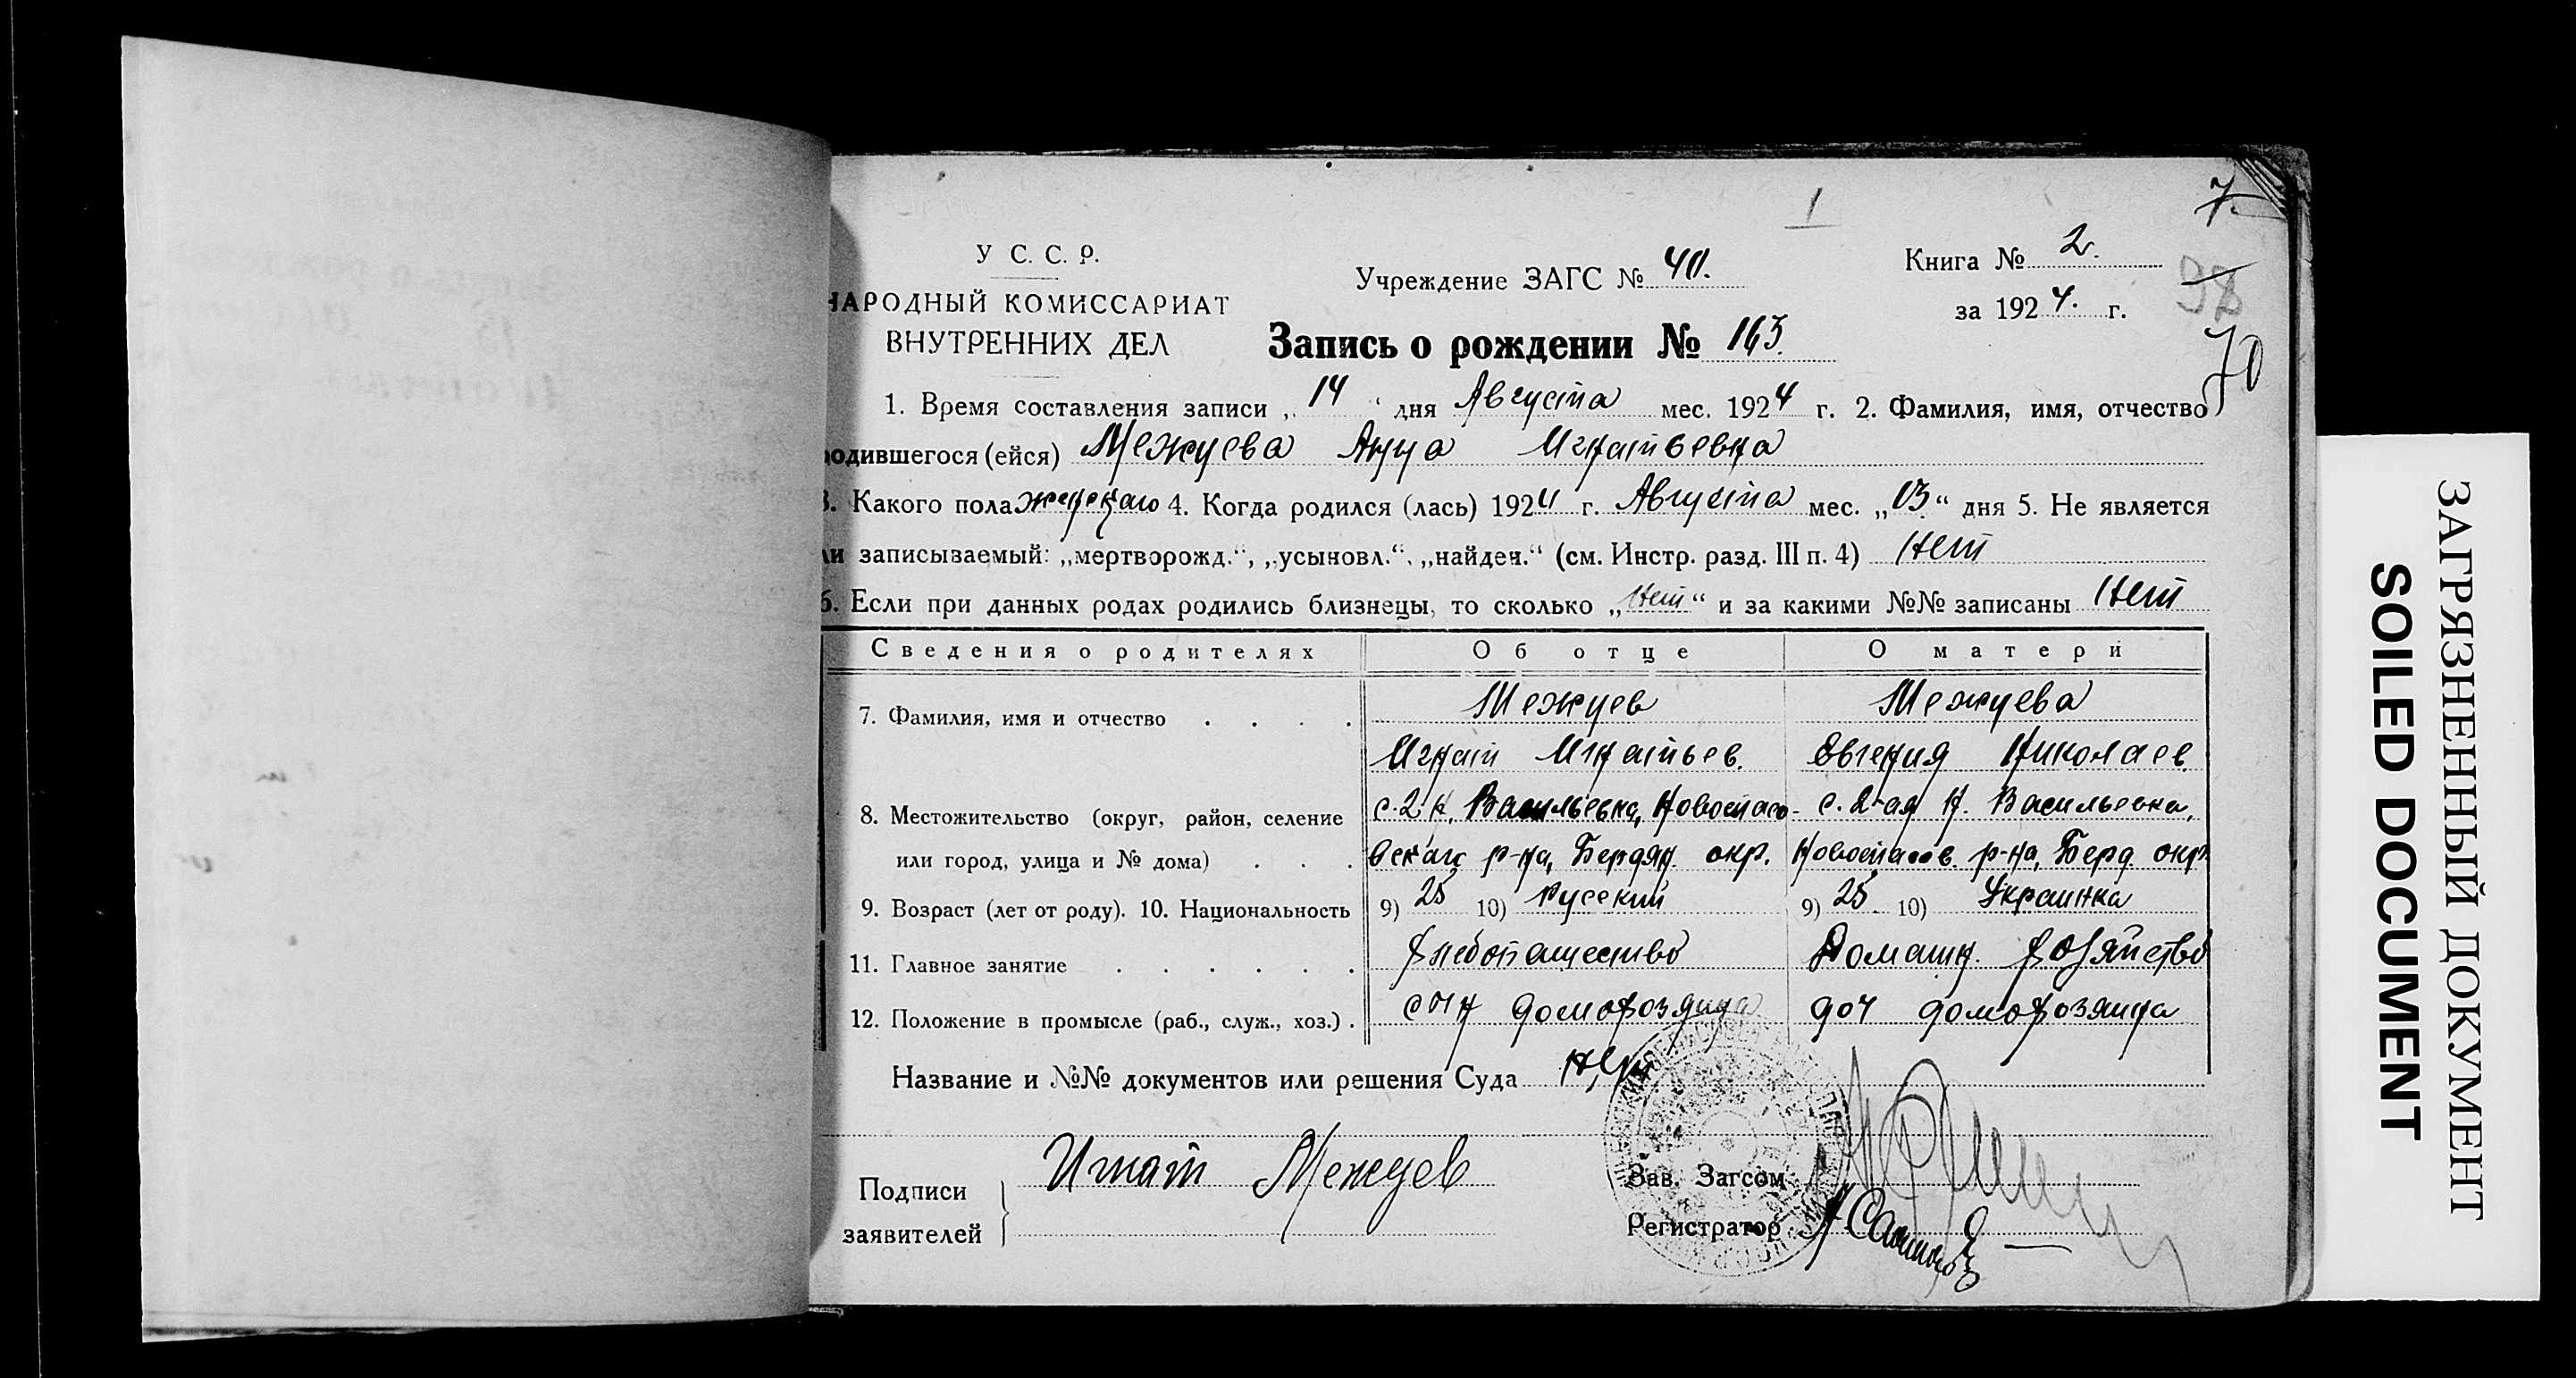 1
7
У С. С. Р.
НАРОДНЫЙ КОМИССАРИАТ
ВНУТРЕННИХ ДЕЛ
Учреждение ЗАГС № 40.
Книга № 2.
за 1924. г.
98
70
Запись о рождении № 163.
1. Время составления записи „ 14 “ дня Августа мес. 1924 г. 2. Фамилия, имя, отчество
родившегося (ейся) Межуева Анна Игнатьевна
3. Какого пола женскаго 4. Когда родился (лась) 1924 г. Августа мес. „03“ дня 5. Не является
ли записываемый: „мертворожд.“, „усыновл.“, „найден.“ (см. Инстр. разд. III п. 4) Нет
6. Если при данных родах родились близнецы, то сколько „Нет“ и за какими №№ записаны Нет
Сведения о родителях Об отце О матери
7. Фамилия, имя и отчество . . . . Межуев Межуева
Игнат Игнатьев. Евгения Николаев.
8. Местожительство (округ, район, селение с. 2 Н. Васильевка, Новоспасо- с. 2-ая Н. Васильевка,
или город, улица и № дома) . . . вскаг р-на, Бердян. окр. Новоспасов. р-на, Берд. окр.
9. Возраст (лет от роду). 10. Национальность 9) 25 10) Русский 9) 25. 10) Украинка
11. Главное занятие . . . . . . Хлебопашество Домашн. хозяйство
12. Положение в промысле (раб., служ., хоз.) . сын домохозяина доч домохозяина
Название и №№ документов или решения Суда Нет
Подписи заявителей Игнат Межуев
Зав. Загсом
Регистратор
ЗАГРЯЗНЕННЫЙ ДОКУМЕНТ
SOILED DOCUMENT